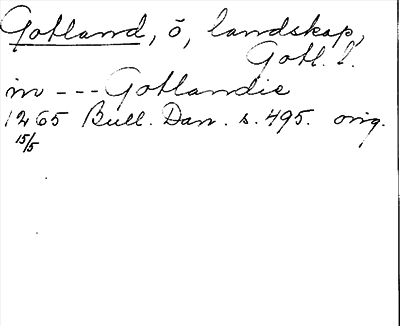 Gotland, ö, landskap,
Gotl. l.
in --- Gotlandie
1265 Bull. Dan. s. 495. orig.
15/5